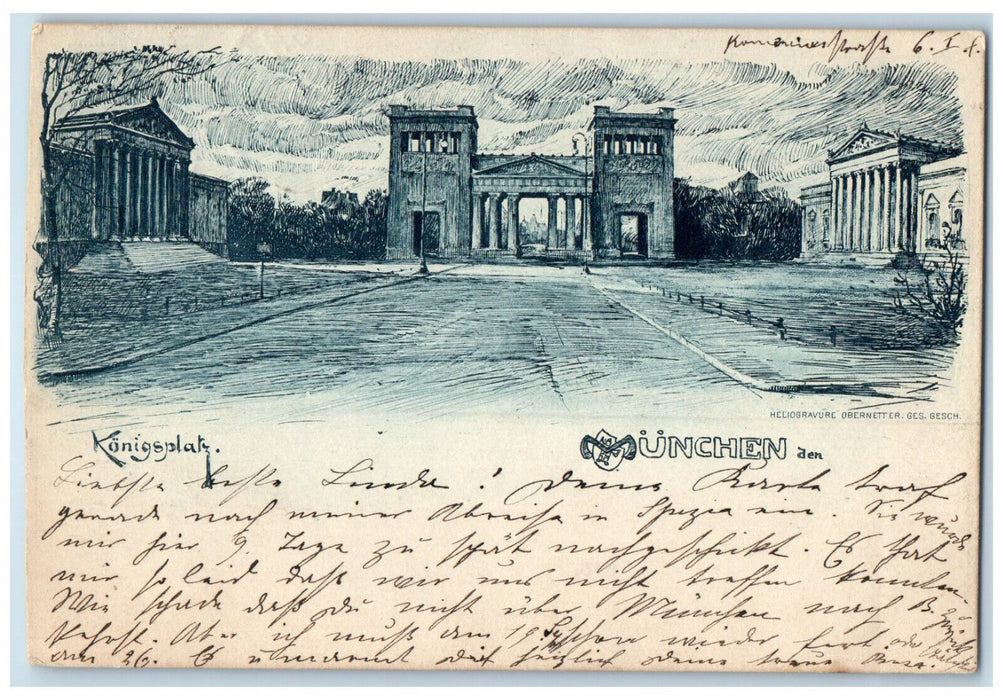 6. I
HELIOGRAVÜRE OBERNETTER. GES. GESCH.
Königsplatz.
MÜNCHEN den
Liebste beste Linda! Deine Karte traf
gerade nach meiner Abreise in Spezia ein. Sie wurde
mir hier 9 Tage zu spät nachgeschickt. Es that
mir so leid daß wir uns nicht treffen konnten.
Wie schade daß du nicht über München nach B. zurück
Aber ich muß am 19 schon wieder fort oder
am 20. Es umarmt dich herzlich deine treue